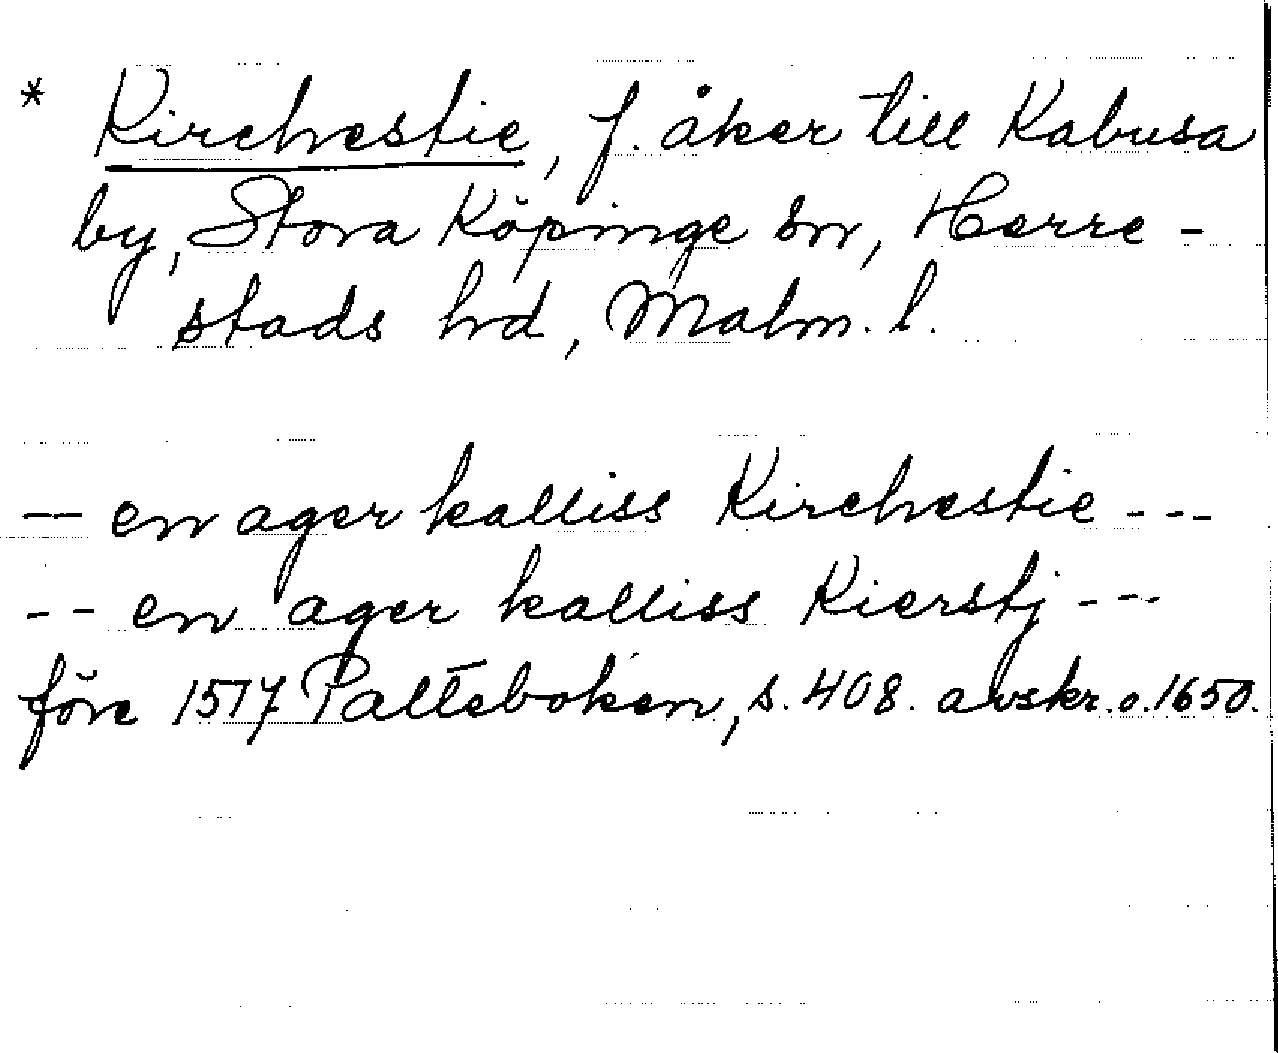 * Kirchestie, f. åker till Kabusa
by, Stora Köpinge sn, Herre-
stads hrd, Malm. l.
-- en ager kalliss Kirchestie ---
-- en ager kalliss Kierstj ---
före 1517 Palteboken, s. 408. avskr. o. 1650.